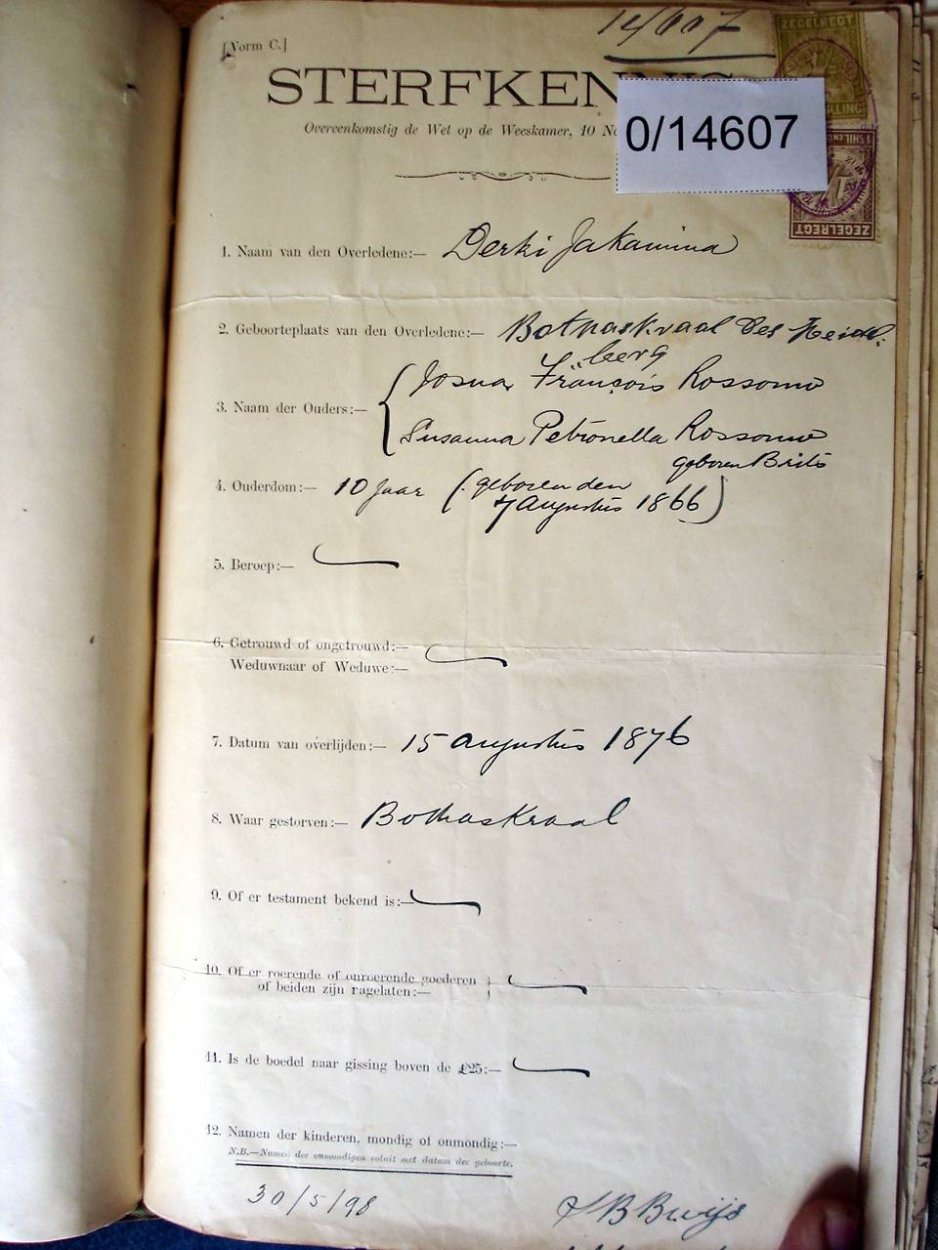 [Vorm C.]
14/607
STERFKENNIS
Overeenkomstig de Wet op de Weeskamer, 10 No
0/14607
ZEGELRECT
ZEGELRECT
1. Naam van den Overledene:— Derki Jakamina
2. Geboorteplaats van den Overledene:— Bothaskraal Des Heidel-
berg
3. Naam der Ouders:— Josua François Rossouw
Susanna Petronella Rossouw
geboren Brits
4. Ouderdom:— 10 Jaar (geboren den
7 Augustus 1866)
5. Beroep:—
6. Getrouwd of ongetrouwd:—
Weduwnaar of Weduwe:—
7. Datum van overlijden:— 15 Augustus 1876
8. Waar gestorven:— Bothaskraal
9. Of er testament bekend is:—
10. Of er roerende of onroerende goederen
of beiden zijn nagelaten:—
11. Is de boedel naar gissing boven de £25:—
12. Namen der kinderen, mondig of onmondig:—
N.B.—Namen der onmondigen voluit met datum der geboorte.
30/5/98